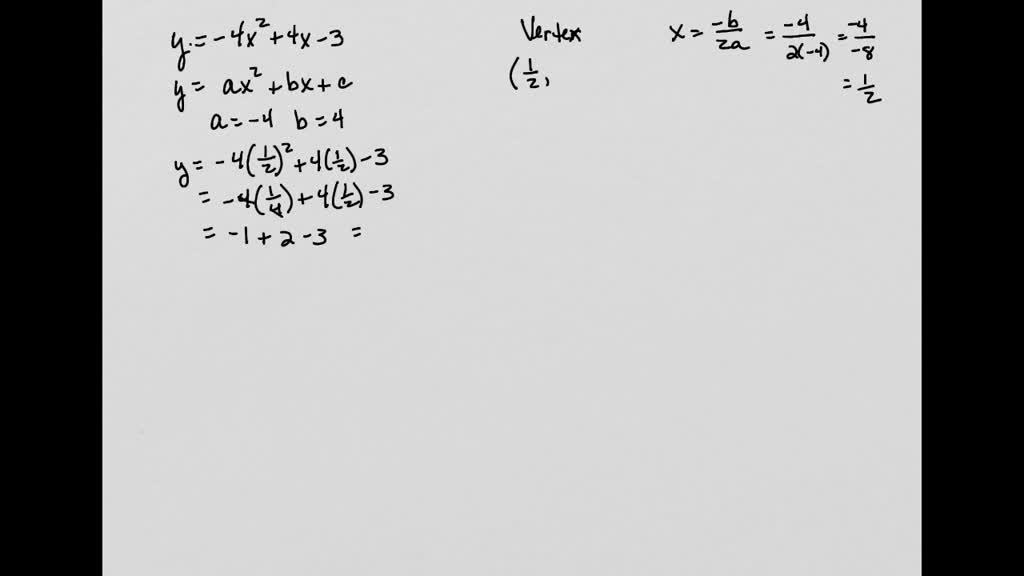 y = -4x² + 4x - 3
y = ax² + bx + c
a = -4 b = 4
y = -4(1/2)² + 4(1/2) - 3
= -4(1/4) + 4(1/2) - 3
= -1 + 2 - 3 =
Vertex
(1/2,
x = -b/2a = -4/2(-4) = -4/-8
= 1/2